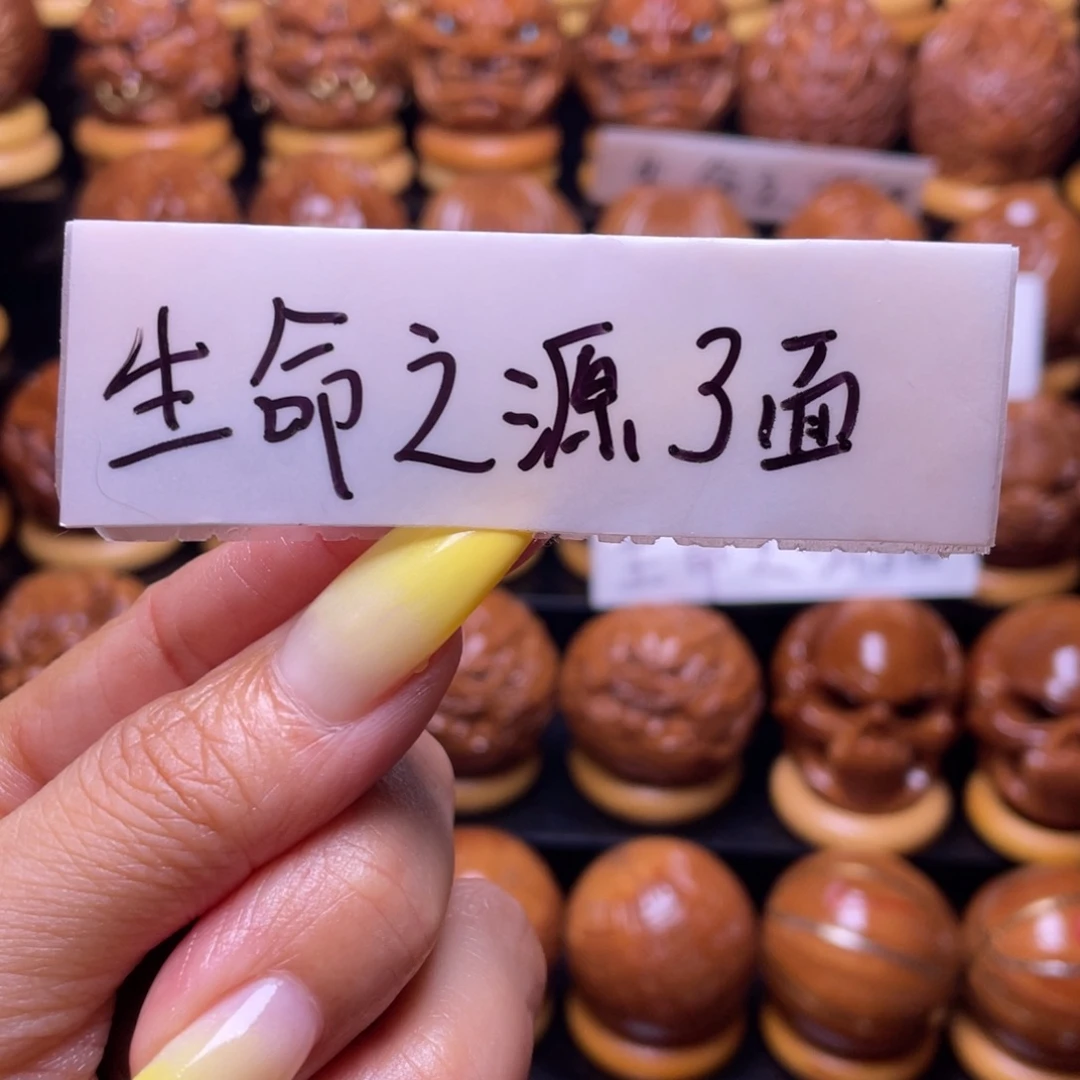 生命之源3面